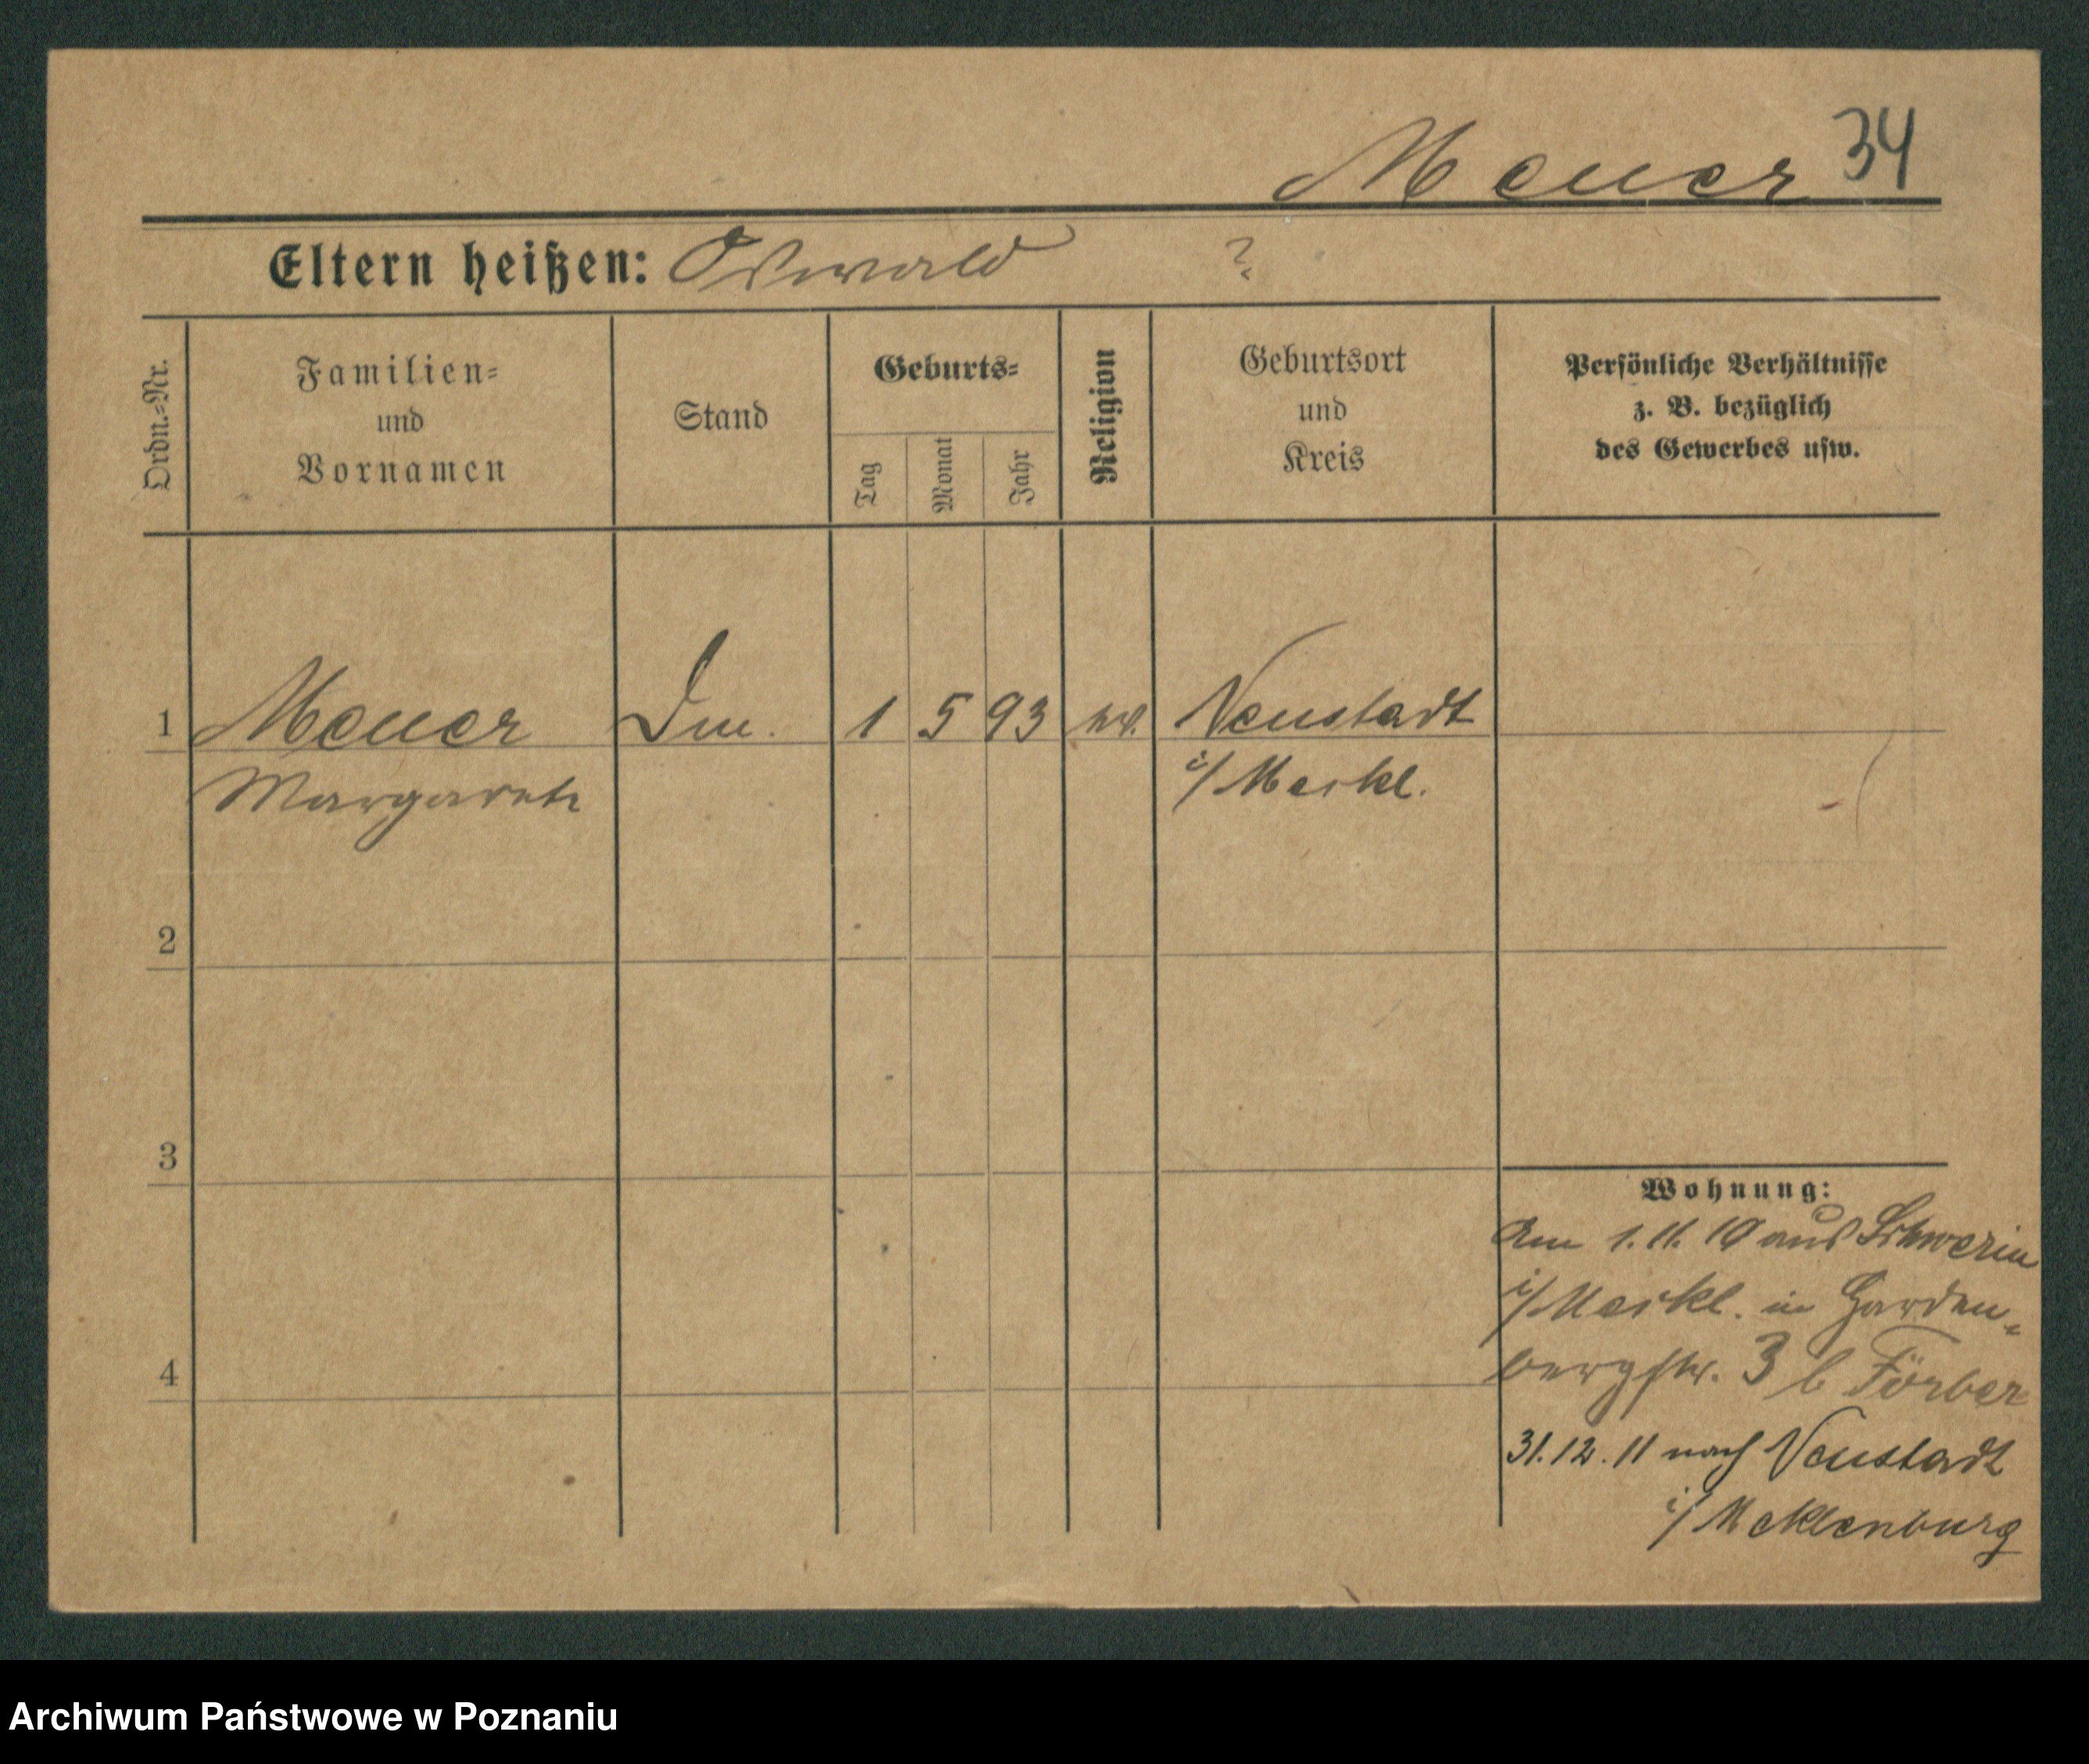 Meuer 34
Eltern heißen: Oswald ?
Ordn.=Nr.
Familien=
und
Vornamen
Stand
Geburts=
Tag
Monat
Jahr
Religion
Geburtsort
und
Kreis
Persönliche Verhältnisse
z. B. bezüglich
des Gewerbes usw.
1 Meuer 1 5 93 Neustadt
Margarete i/ Meckl.
2
3
4
Wohnung:
Am 1.11.10 aus Schwerin
i/Meckl. in Harden=
bergstr. 3 b Förber
31.12.11 nach Neustadt
i/ Meklenburg
Archiwum Państwowe w Poznaniu